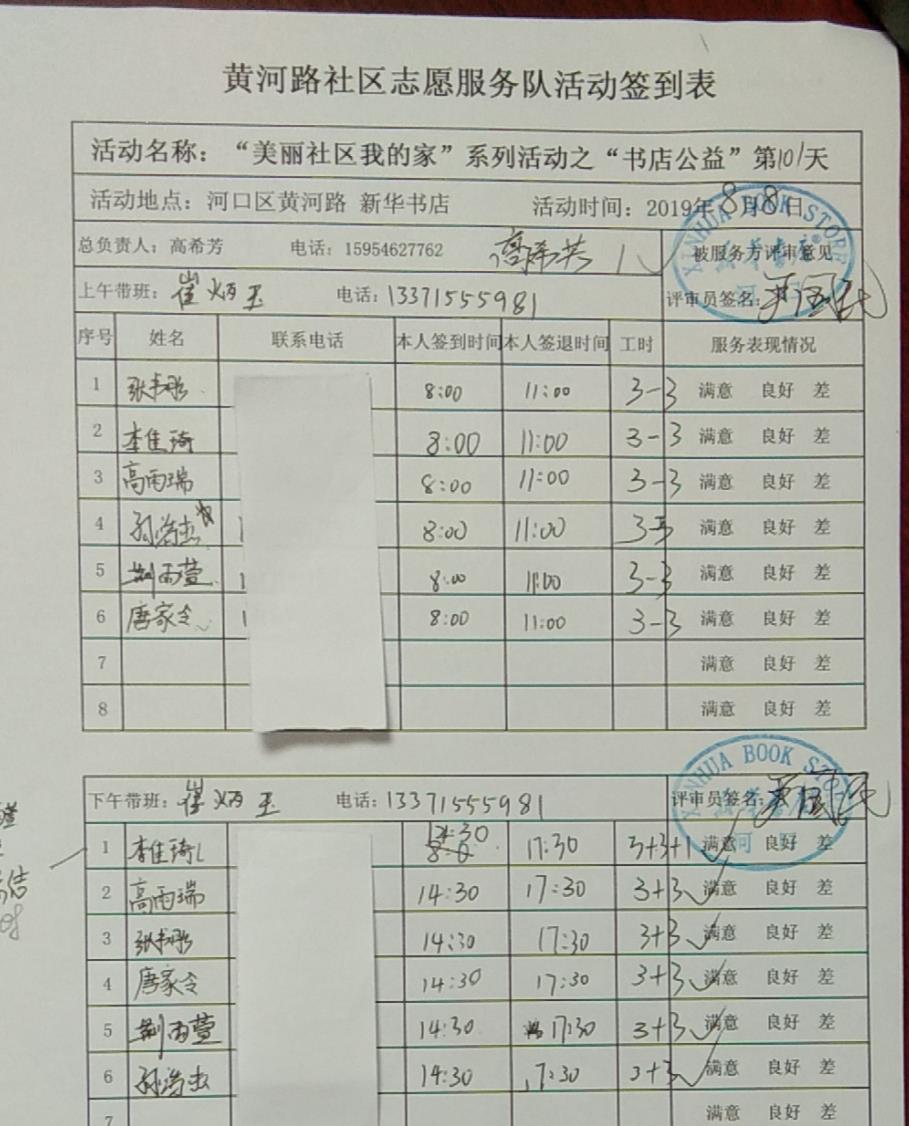 黄河路社区志愿服务队活动签到表
活动名称：“美丽社区我的家”系列活动之“书店公益”第101天
活动地点：河口区黄河路 新华书店 活动时间：2019年8月8日
总负责人：高希芳 电话：15954627762 高希芳 1 被服务方评审意见
上午带班：崔炳玉 电话：13371555981 评审员签名：
序号 姓名 联系电话 本人签到时间 本人签退时间 工时 服务表现情况
1 8:00 11:00 3-3 满意 良好 差
2 李佳琦 8:00 11:00 3-3 满意 良好 差
3 高雨瑞 8:00 11:00 3-3 满意 良好 差
4 孙浩 8:00 11:00 3-3 满意 良好 差
5 荆雨萱 8:00 11:00 3-3 满意 良好 差
6 唐家令 8:00 11:00 3-3 满意 良好 差
7 满意 良好 差
8 满意 良好 差
XINHUA BOOK STORE
下午带班：崔炳玉 电话：13371555981 评审员签名：
1 李佳琦 17:30 3+3+1 满意 良好 差
2 高雨瑞 14:30 17:30 3+3 满意 良好 差
3 14:30 17:30 3+3 满意 良好 差
4 唐家令 14:30 17:30 3+3 满意 良好 差
5 荆雨萱 14:30 17:30 3+3 满意 良好 差
6 孙浩 14:30 17:30 3+3 满意 良好 差
7 满意 良好 差
XINHUA BOOK STORE